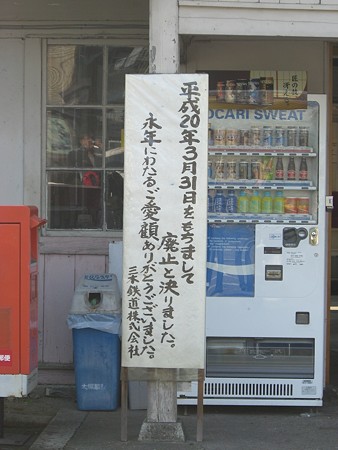 平成20年3月31日をもちまして
廃止と決りました。
永年にわたるご愛顧ありがとうございました。
三木鉄道株式会社
POCARI SWEAT
郵便